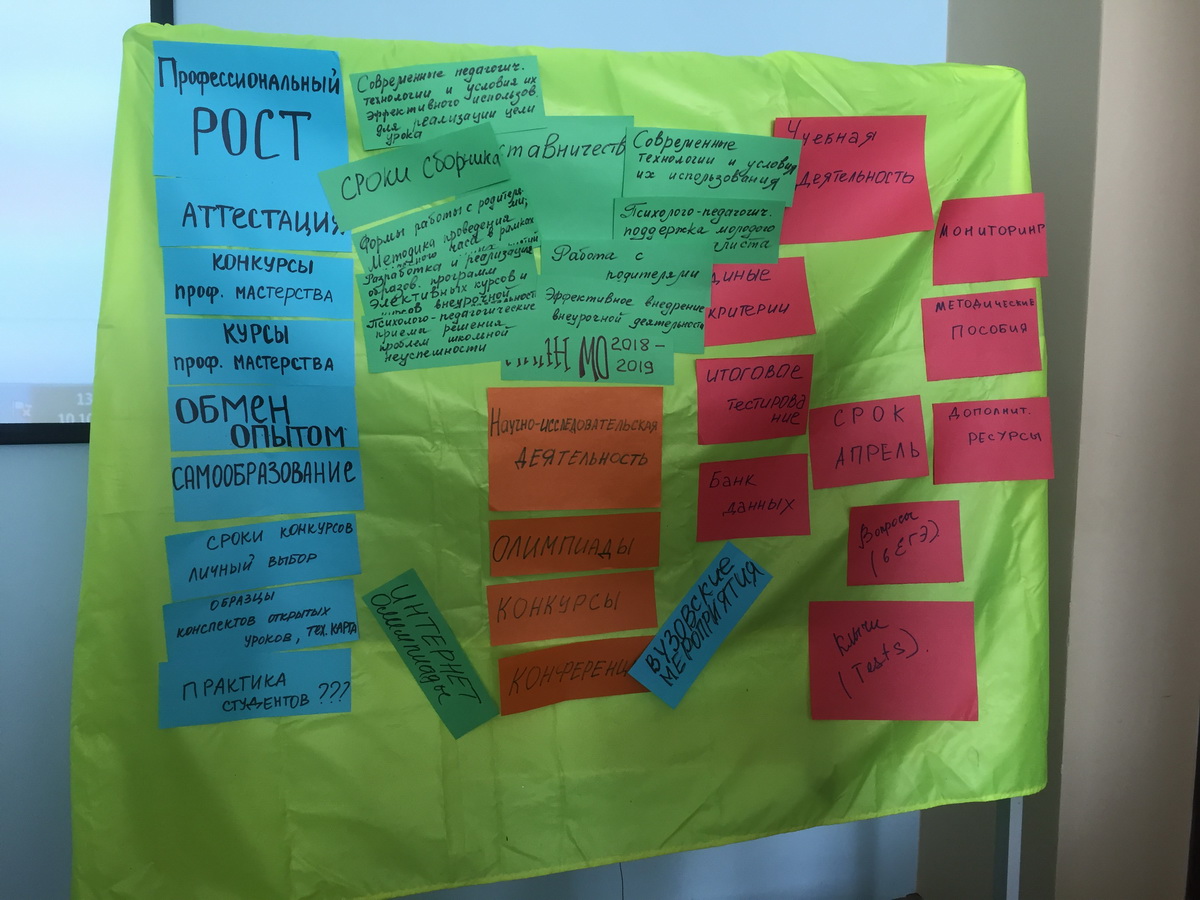 Профессиональный
РОСТ
АТТЕСТАЦИЯ
КОНКУРСЫ
проф. МАСТЕРСТВА
КУРСЫ
проф. МАСТЕРСТВА
ОБМЕН
ОПЫТОМ
САМООБРАЗОВАНИЕ
СРОКИ КОНКУРСОВ
ЛИЧНЫЙ ВЫБОР
ОБРАЗЦЫ
КОНСПЕКТОВ ОТКРЫТЫХ
УРОКОВ, ТЕХ. КАРТА
ПРАКТИКА
СТУДЕНТОВ ???
Современные педагогич.
технологии и условия их
эффективного использов.
для реализации цели
урока
СРОКИ СБОРНИКА
ставничеств
Современные
технологии и условия
их использования
Формы работы с родителя-
ми;
Методика проведения
часа в рамках
Психолого-педагогич.
поддержка молодого
листа
Разработка и реализация
образов. программ
элективных курсов и
внеурочной
Психолого-педагогические
приемы решения
проблем школьной
неуспешности
Работа с
родителями
Эффективное внедрение
внеурочной деятельности
МО 2018-
2019
Научно-исследовательская
ДЕЯТЕЛЬНОСТЬ
ОЛИМПИАДЫ
КОНКУРСЫ
КОНФЕРЕНЦ
ИНТЕРНЕТ
Олимпиады
ВУЗОВСКИЕ
МЕРОПРИЯТИЯ
Учебная
ДЕЯТЕЛЬНОСТЬ
диные
критерии
ИТОГОВОЕ
тестирова
ние
Банк
данных
МОНИТОРИНГ
МЕТОДИЧЕСКИЕ
ПОСОБИЯ
СРОК
АПРЕЛЬ
ДОПОЛНИТ.
РЕСУРСЫ
Вопросы
(в ЕГЭ)
Ключи
(Tests).
13
10.10